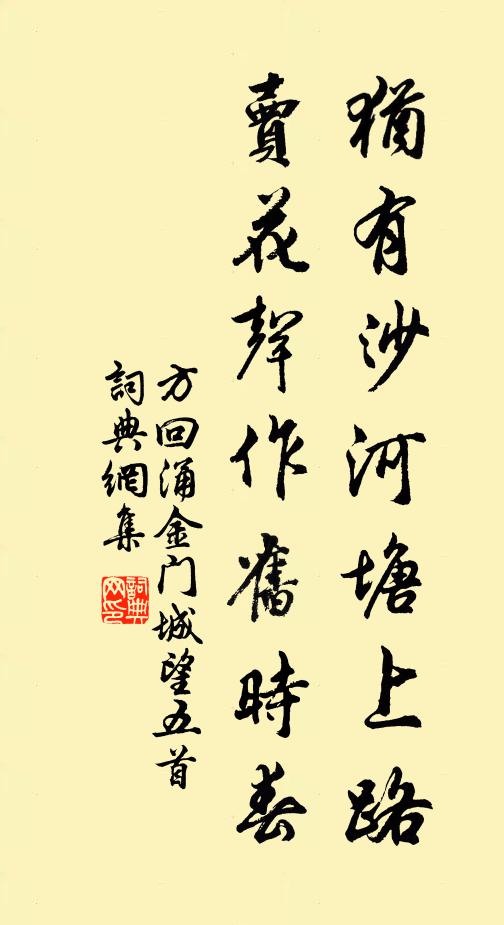 猶有沙河塘上路
賣花聲作舊時春
方回涌金门城望五首
詞典網集
詞典网印